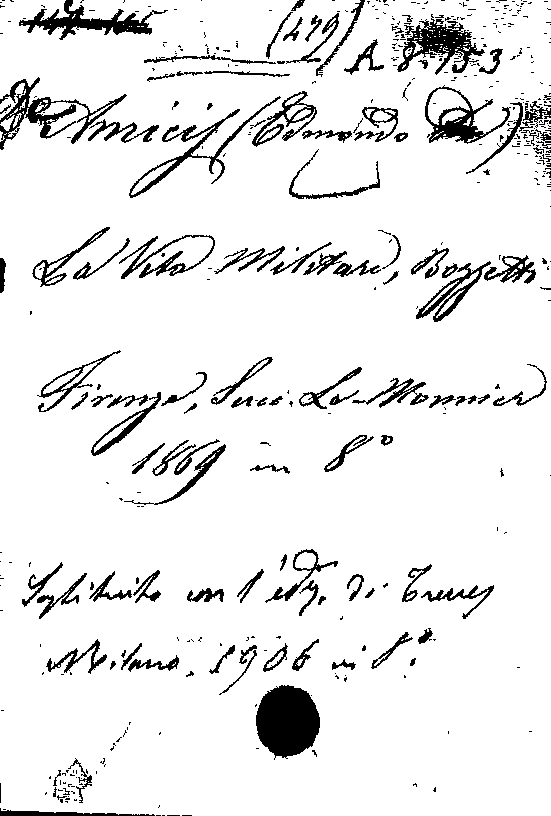 (479)
A. 8. 153
De Amicis (Edmondo De)
La Vita Militare, Bozzetti
Firenze, Succ. Le-Monnier
1869 in 8°
Sostituito con l'ediz. di Treves
Milano, 1906 in 8°.